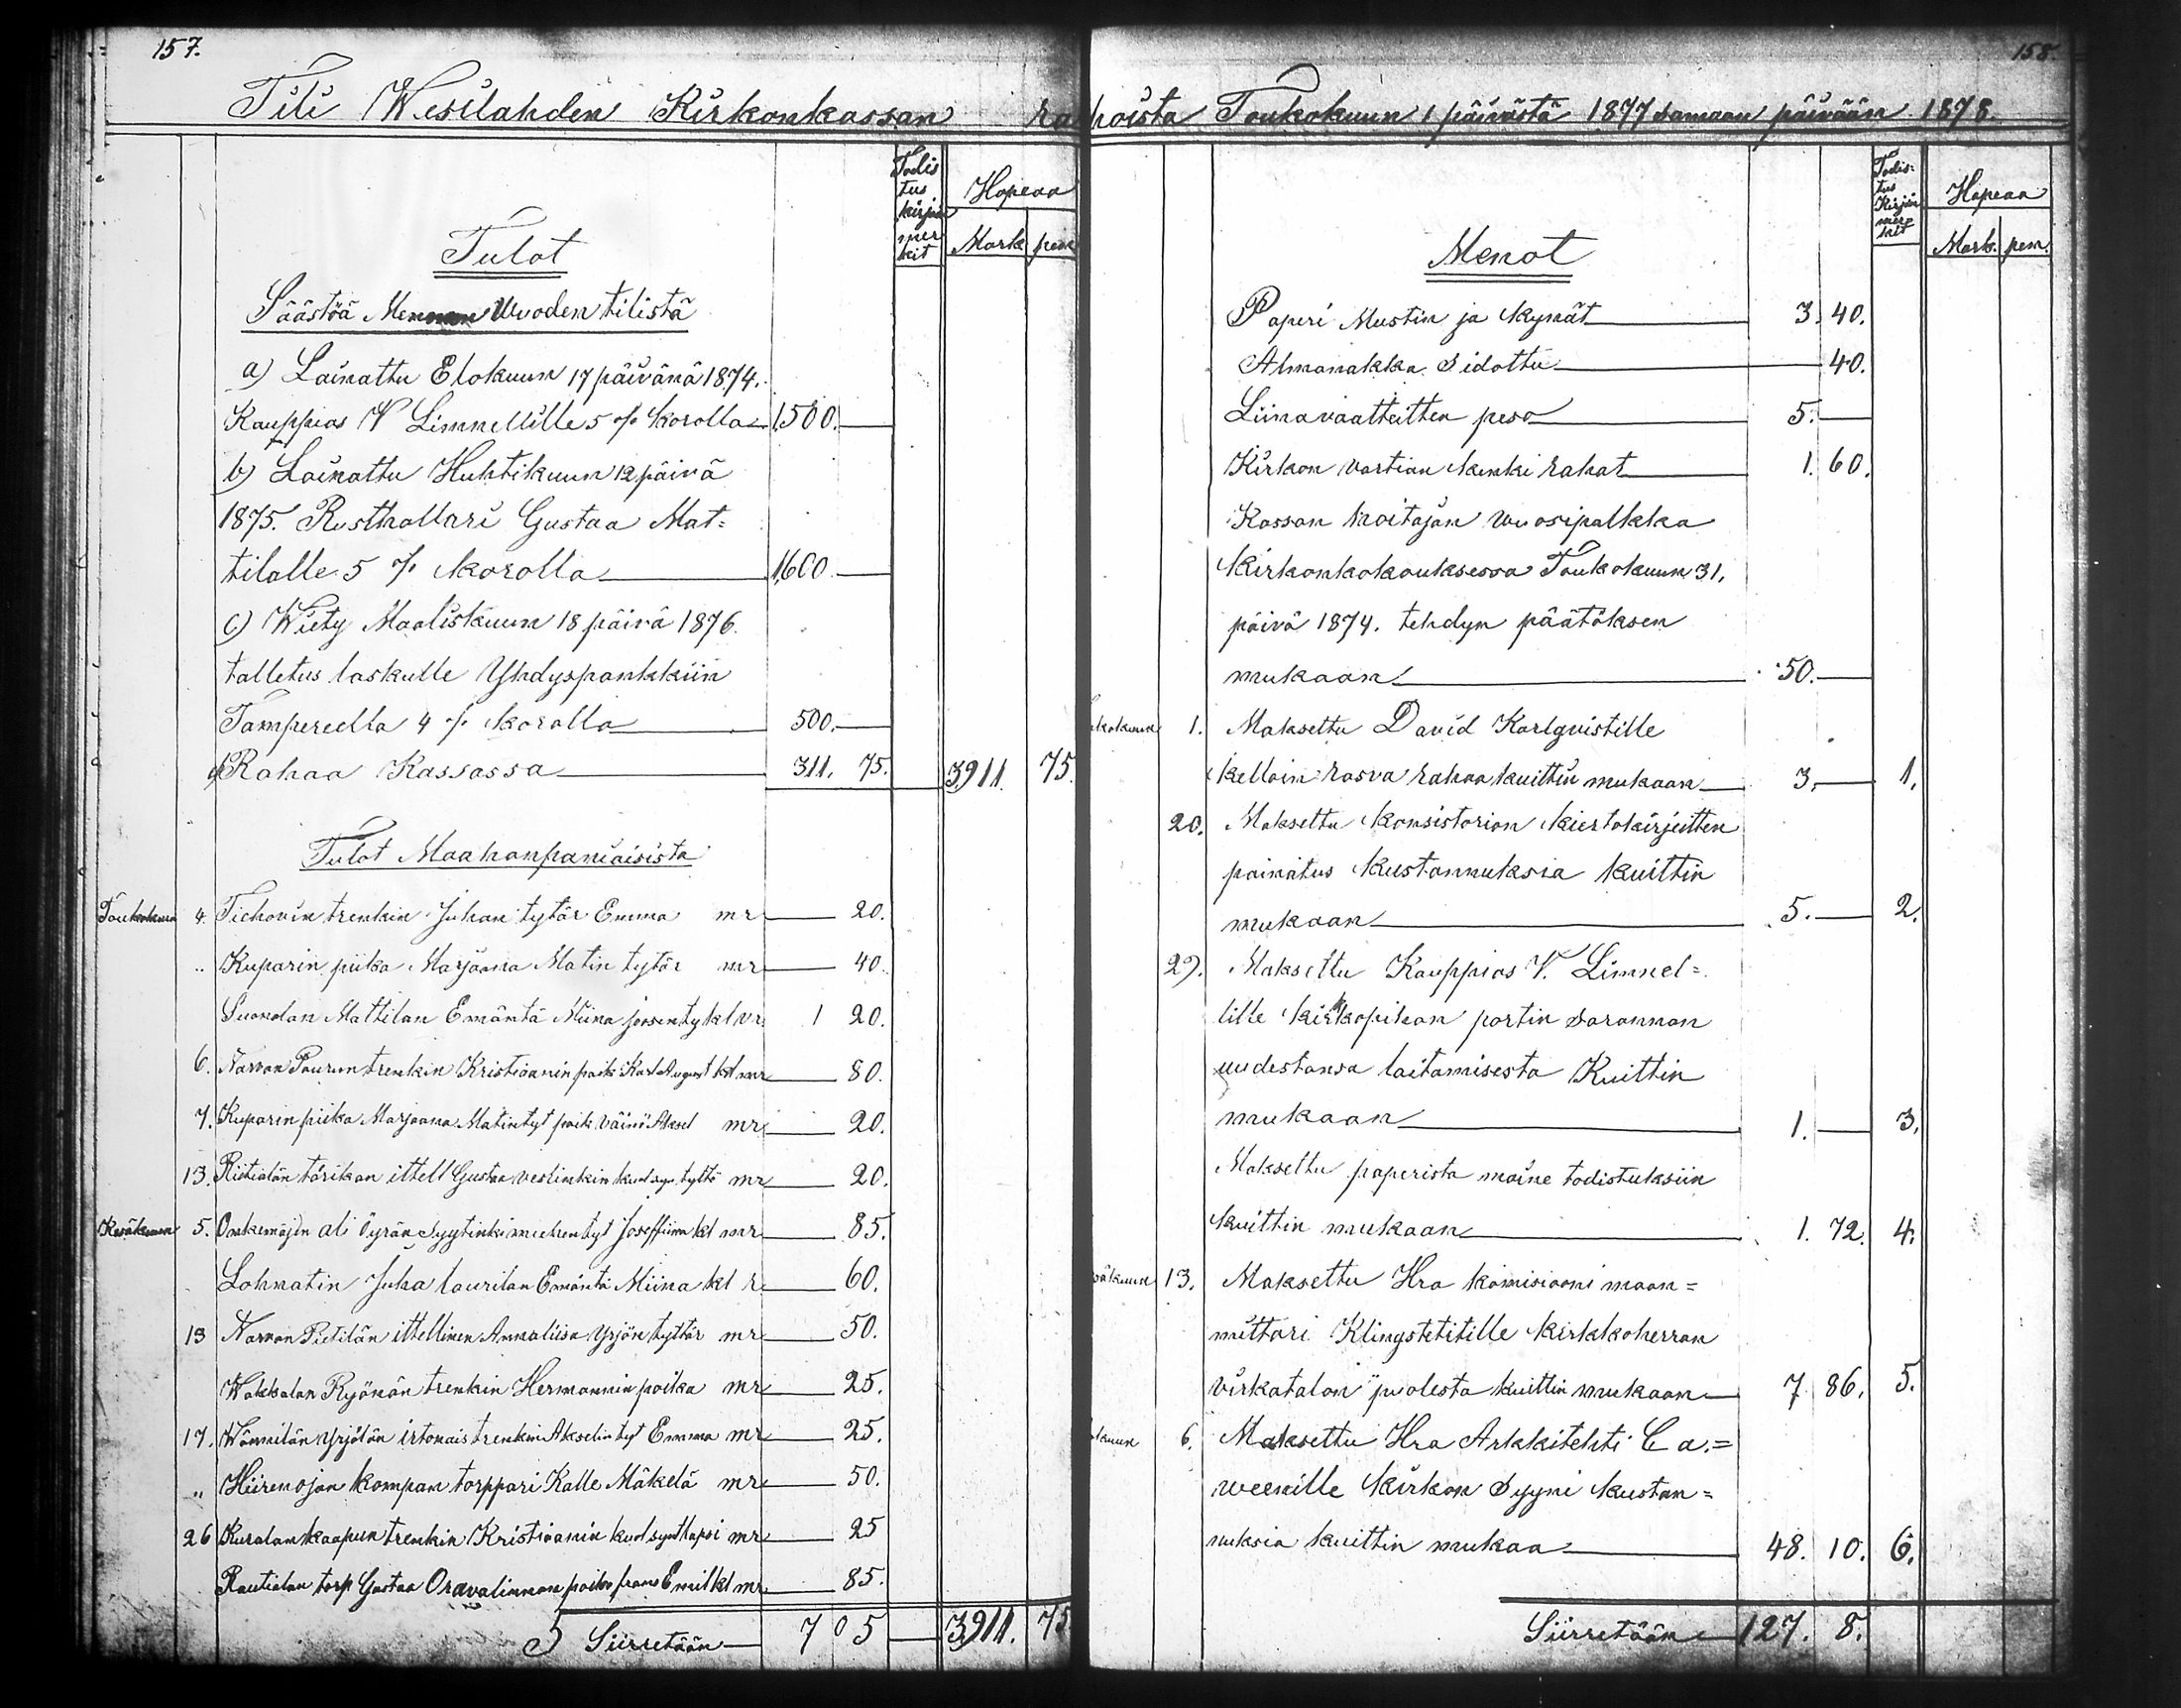 157.
Tili Wesilahden Kirkonkassan
Todis
tus
kirjain
mer
kit
Hopeaa
Mark pen
Tulot
Säästöä Mennen Wuoden tilistä
a) Lainattu Elokuun 17 päivänä 1874.
Kauppias W Limnellille 5 % korolla 1,500.
b) Lainattu Huhtikuun 12 päivä
1875. Rusthollari Gustaa Mat=
tilalle 5 % korolla 1,600.
c) Wiety Maaliskuun 18 päivä 1876.
talletus laskulle Yhdyspankkiin
Tampereella 4 % korolla 500.
d) Rahaa Kassassa 311. 75. 3,911. 75.
Tulot Maahanpaniaisista
Toukokuun 4. Tichovin trenkin Juhan tytär Emma mr 20.
„ Kuparin piika Marjaana Matin tytär mr 40.
Suomelan Mattilan Emäntä Miina joosenty kl vr 1 20.
6. Narvan Paurun trenkin Kristiaanin poika Karl August kl mr 80.
7. Kuparin piika Marjaana Matintyt poik Väinö Aksel mr 20.
13. Ristialan törikan ittell Gustaa vestinkin kuol syn tyttö mr 20.
Kesäkuun 5. Onkemäjen ali Öyrän Syytinkimiehen tyt Joseffiina kl mr 85.
Lohmatin Juha laurilan Emäntä Miina kl r 60.
13 Narvan Pietilän ittellinen Annaliisa Yrjön tyttär mr 50.
Wakkalan Ryönän trenkin Hermannin poika mr 25.
17. Wännilän Yrjölän irtonais trenkin Akselin tyt Emma mr 25.
„ Hiirenojan kompan torppari Kalle Mäkelä mr 50.
26 Kuralan kaapun trenkin Kristiaanin kuol synt lapsi mr 25
Rautialan torp Gustaa Oravalinnan poika frans Emil kl mr 85.
Siirretään 7 05 3,911. 75
158.
rahoista Toukokuun 1 päivästä 1877 samaan päivään 1878.
Todis=
tus
Kirjain
mer=
kit
Hopeaa
Mark. pen.
Menot
Paperi Mustin ja kynät 3. 40.
Almanakka Sidottu 40.
Liinavaatteitten peso 5.
Kirkon vartian kenki rahat 1. 60.
Kassan hoitajan wuosipalkka
kirkonkokouksessa Toukokuun 31.
päivä 1874. tehdyn päätöksen
mukaan 50.
1. Maksettu David Karlqvistille
kelloin rasva rahaa kuittin mukaan 3. 1.
20. Maksettu konsistorion kiertokirjeitten
painatus kustannuksia kuittin
mukaan 5. 2.
29. Maksettu Kauppias V. Limnel=
lille kirkkopihan portin saranan
uudestansa laitamisesta Kuittin
mukaan 1. 3.
Maksettu paperista maine todistuksiin
kuittin mukaan 1. 72. 4.
13. Maksettu Hra komisiooni maan=
mittari Klingstetitille kirkkoherran
virkatalon puolesta kuittin mukaan 7 86. 5.
6. Maksettu Hra Arkkitehti Ca.=
weenille kirkon Syyni kustan=
nuksia kuittin mukaa 48. 10. 6.
Siirretään 127. 8.